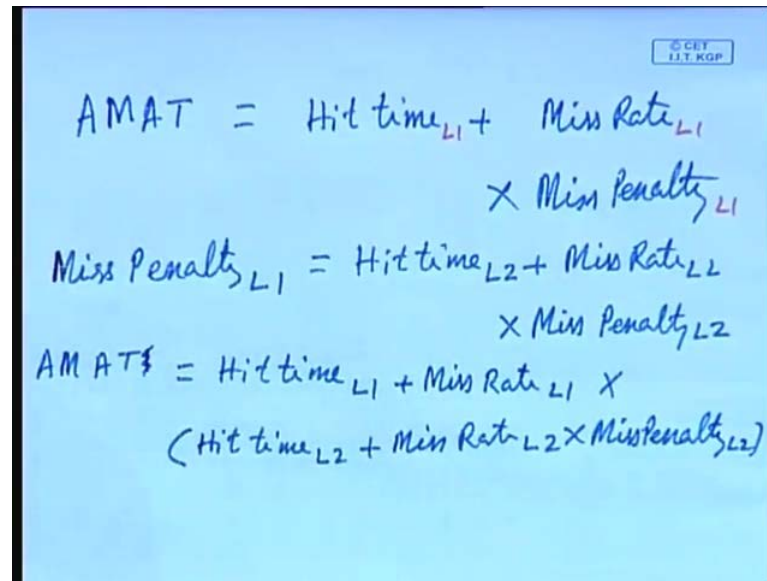 © CET
I.I.T. KGP
AMAT = Hit time L1 + Miss Rate L1
× Miss Penalty L1
Miss Penalty L1 = Hit time L2 + Miss Rate L2
× Miss Penalty L2
AMAT = Hit time L1 + Miss Rate L1 ×
(Hit time L2 + Miss Rate L2 × Miss Penalty L2)